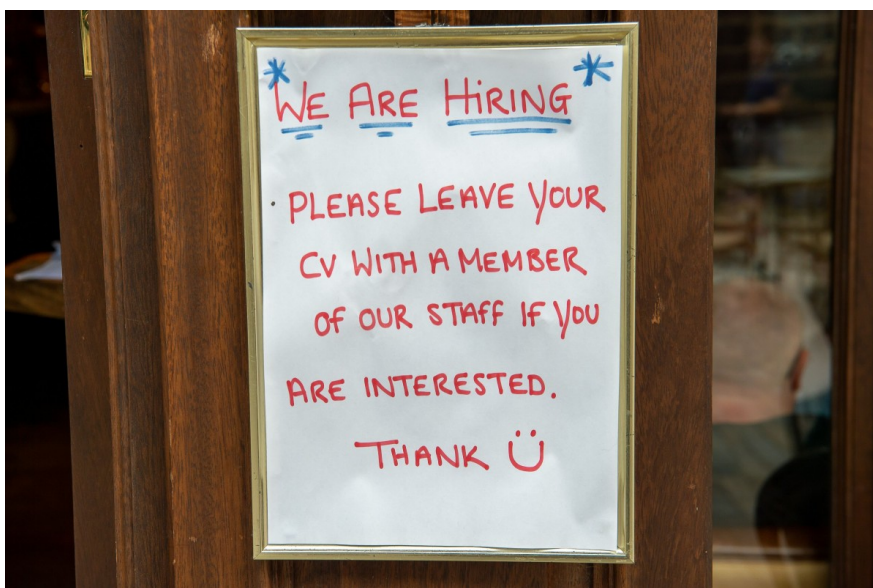 *WE ARE HiRiNG*
PLEASE LEAVE YOUR
CV WITH A MEMBER
OF OUR STAFF IF YOU
ARE INTERESTED.
THANK Ü